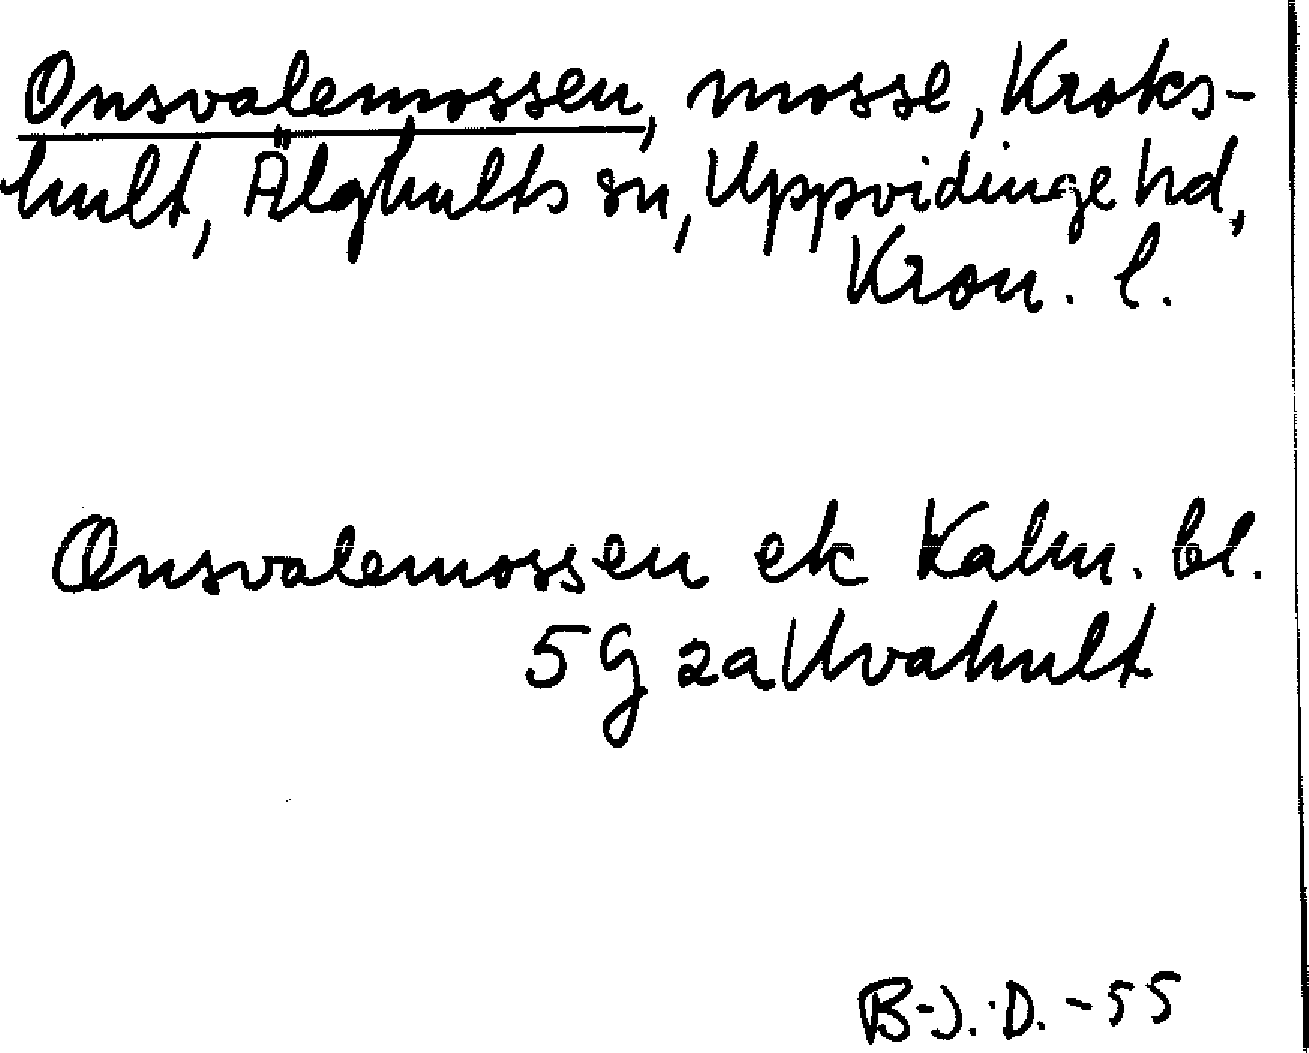 Onsvalemossen, mosse, Kroks-
hult, Älghults sn, Uppvidinge hd,
Kron. l.
Onsvalemossen ek Kalm. bl.
5 g 2a Uvahult
B-J. D. -55